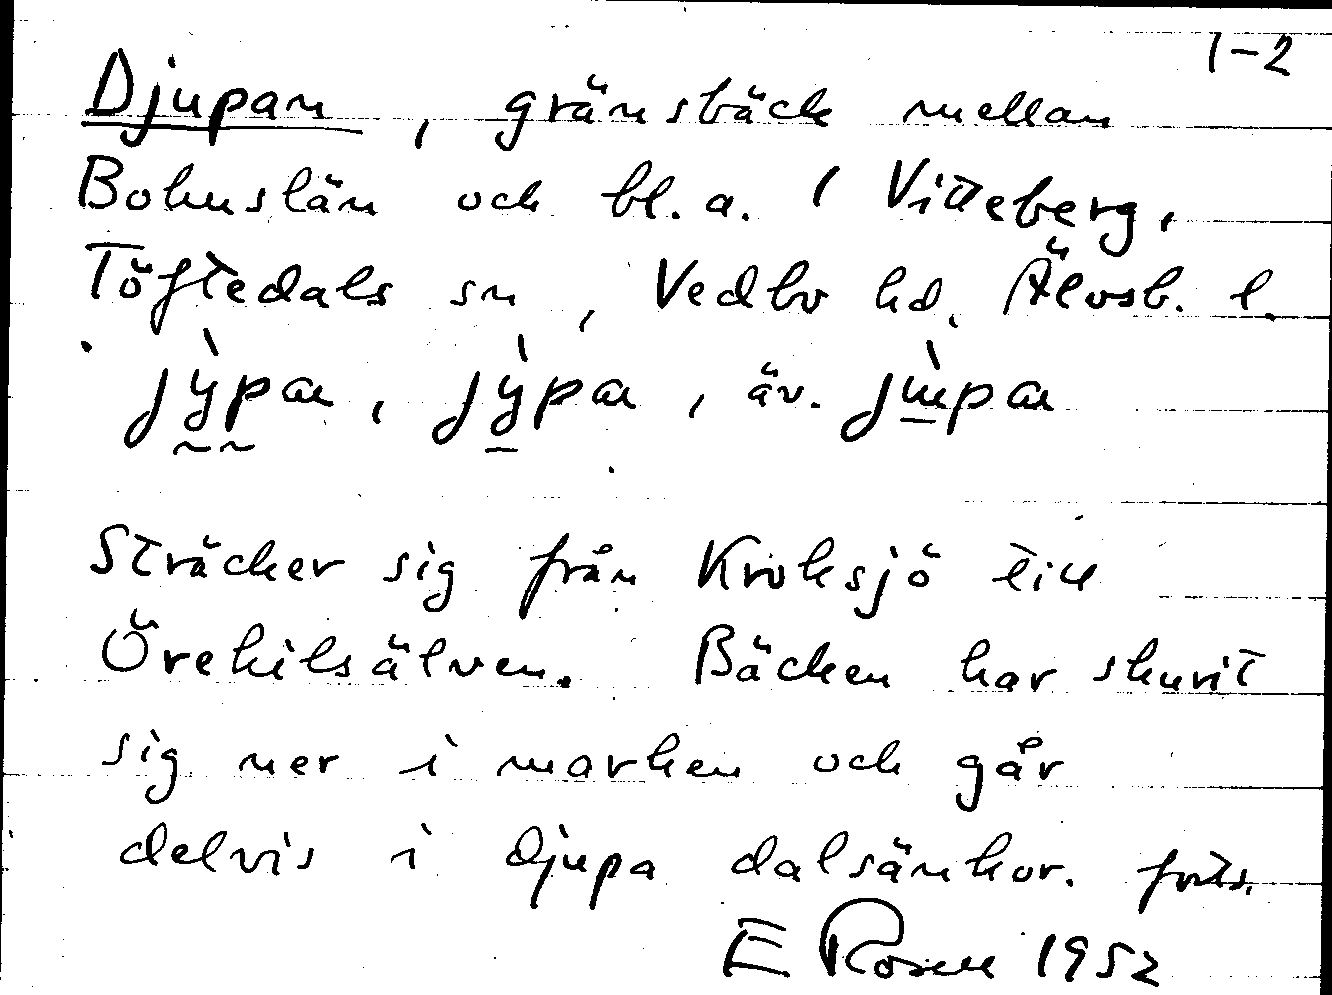 1-2
Djupan, gränsbäck mellan
Bohuslän och bl.a. Vitteberg,
Töftedals sn, Vedbo hd. Älvsb. l.
jỳpa, jỳpa, äv. jùpa
Sträcker sig från Kroksjö till
Örekilsälven. Bäcken har skurit
sig ner i marken och går
delvis i djupa dalsänkor. forts.
E Rosell 1952